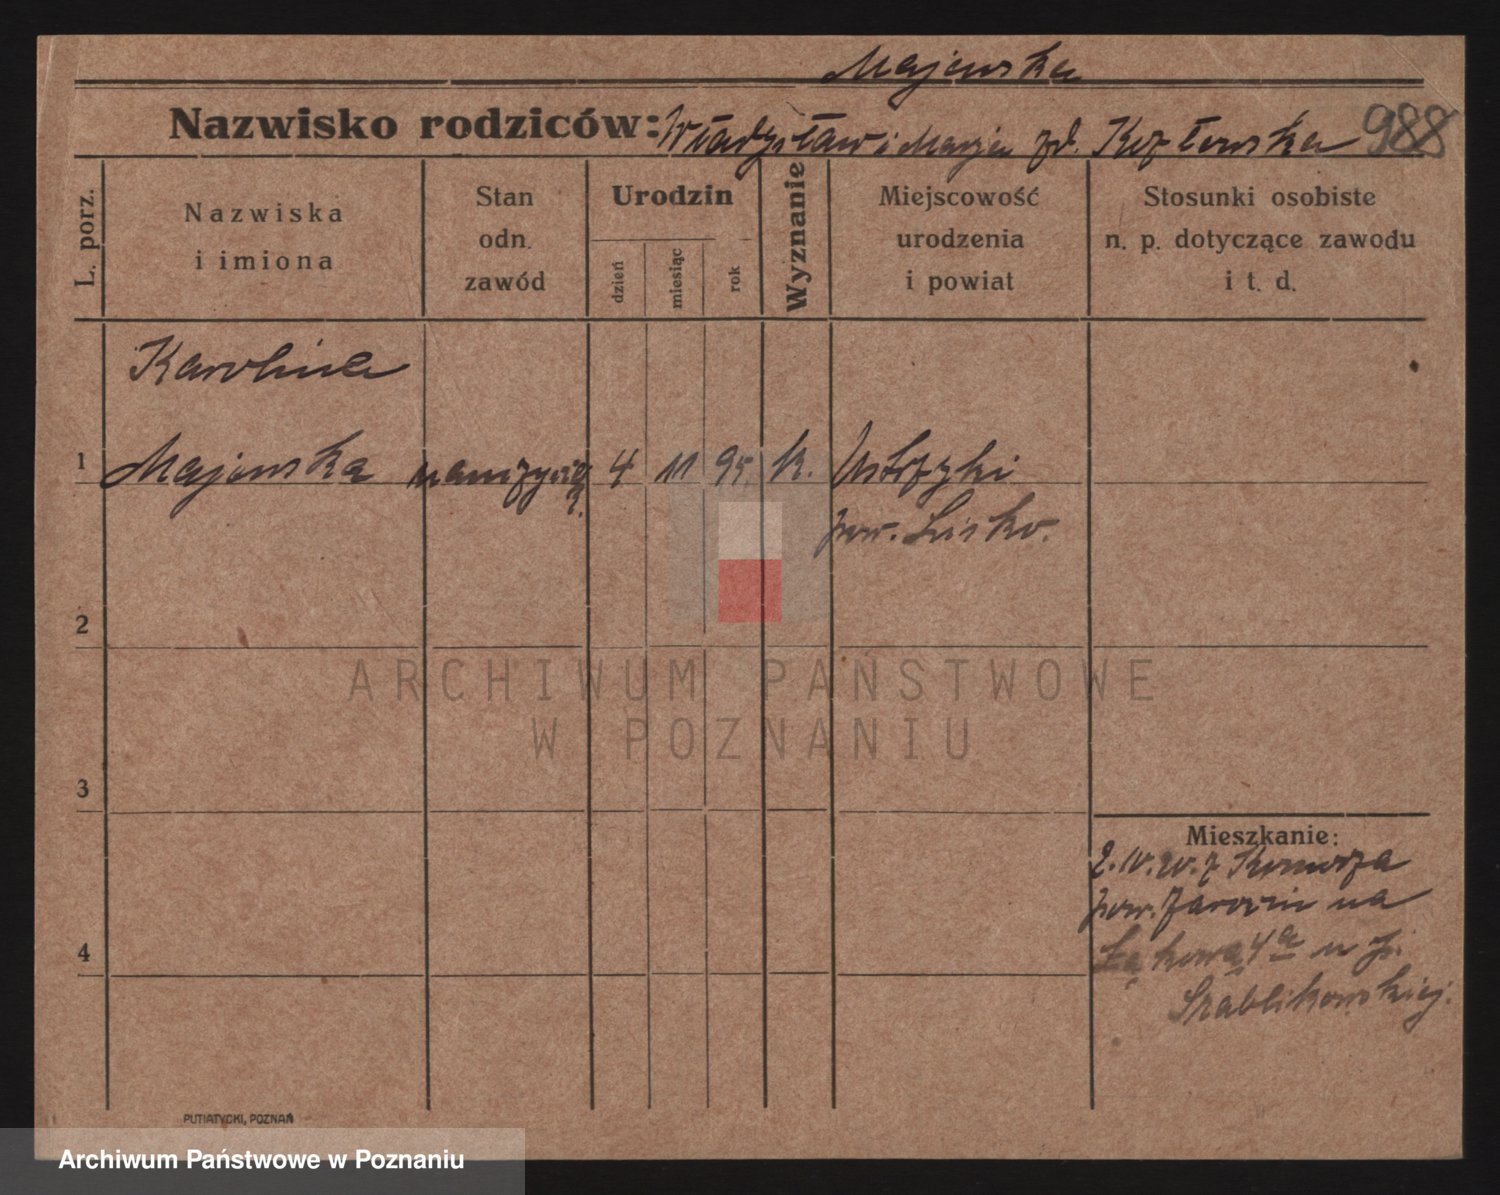 Majewska
Nazwisko rodziców: Władysław i Marja zd. Kozłowska 988
L. porz.
Nazwiska
i imiona
Stan
odn.
zawód
Urodzin
dzień
miesiąc
rok
Wyznanie
Miejscowość
urodzenia
i powiat
Stosunki osobiste
n. p. dotyczące zawodu
i t. d.
Karolina
1 Majewska 4 11 95. K. Ustrzyki
pow. Lisko.
2
3
4
Mieszkanie:
2. IV. 20. z Komorza
pow. Jarocin na
Łąkową 4a u p.
Szablikowskiej.
PUTIATYCKI, POZNAŃ
ARCHIWUM PAŃSTWOWE
W POZNANIU
Archiwum Państwowe w Poznaniu